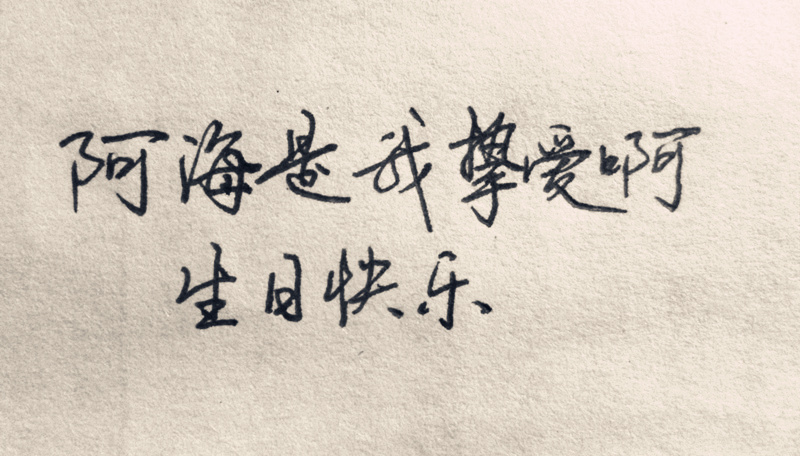 阿海是我挚爱啊
生日快乐